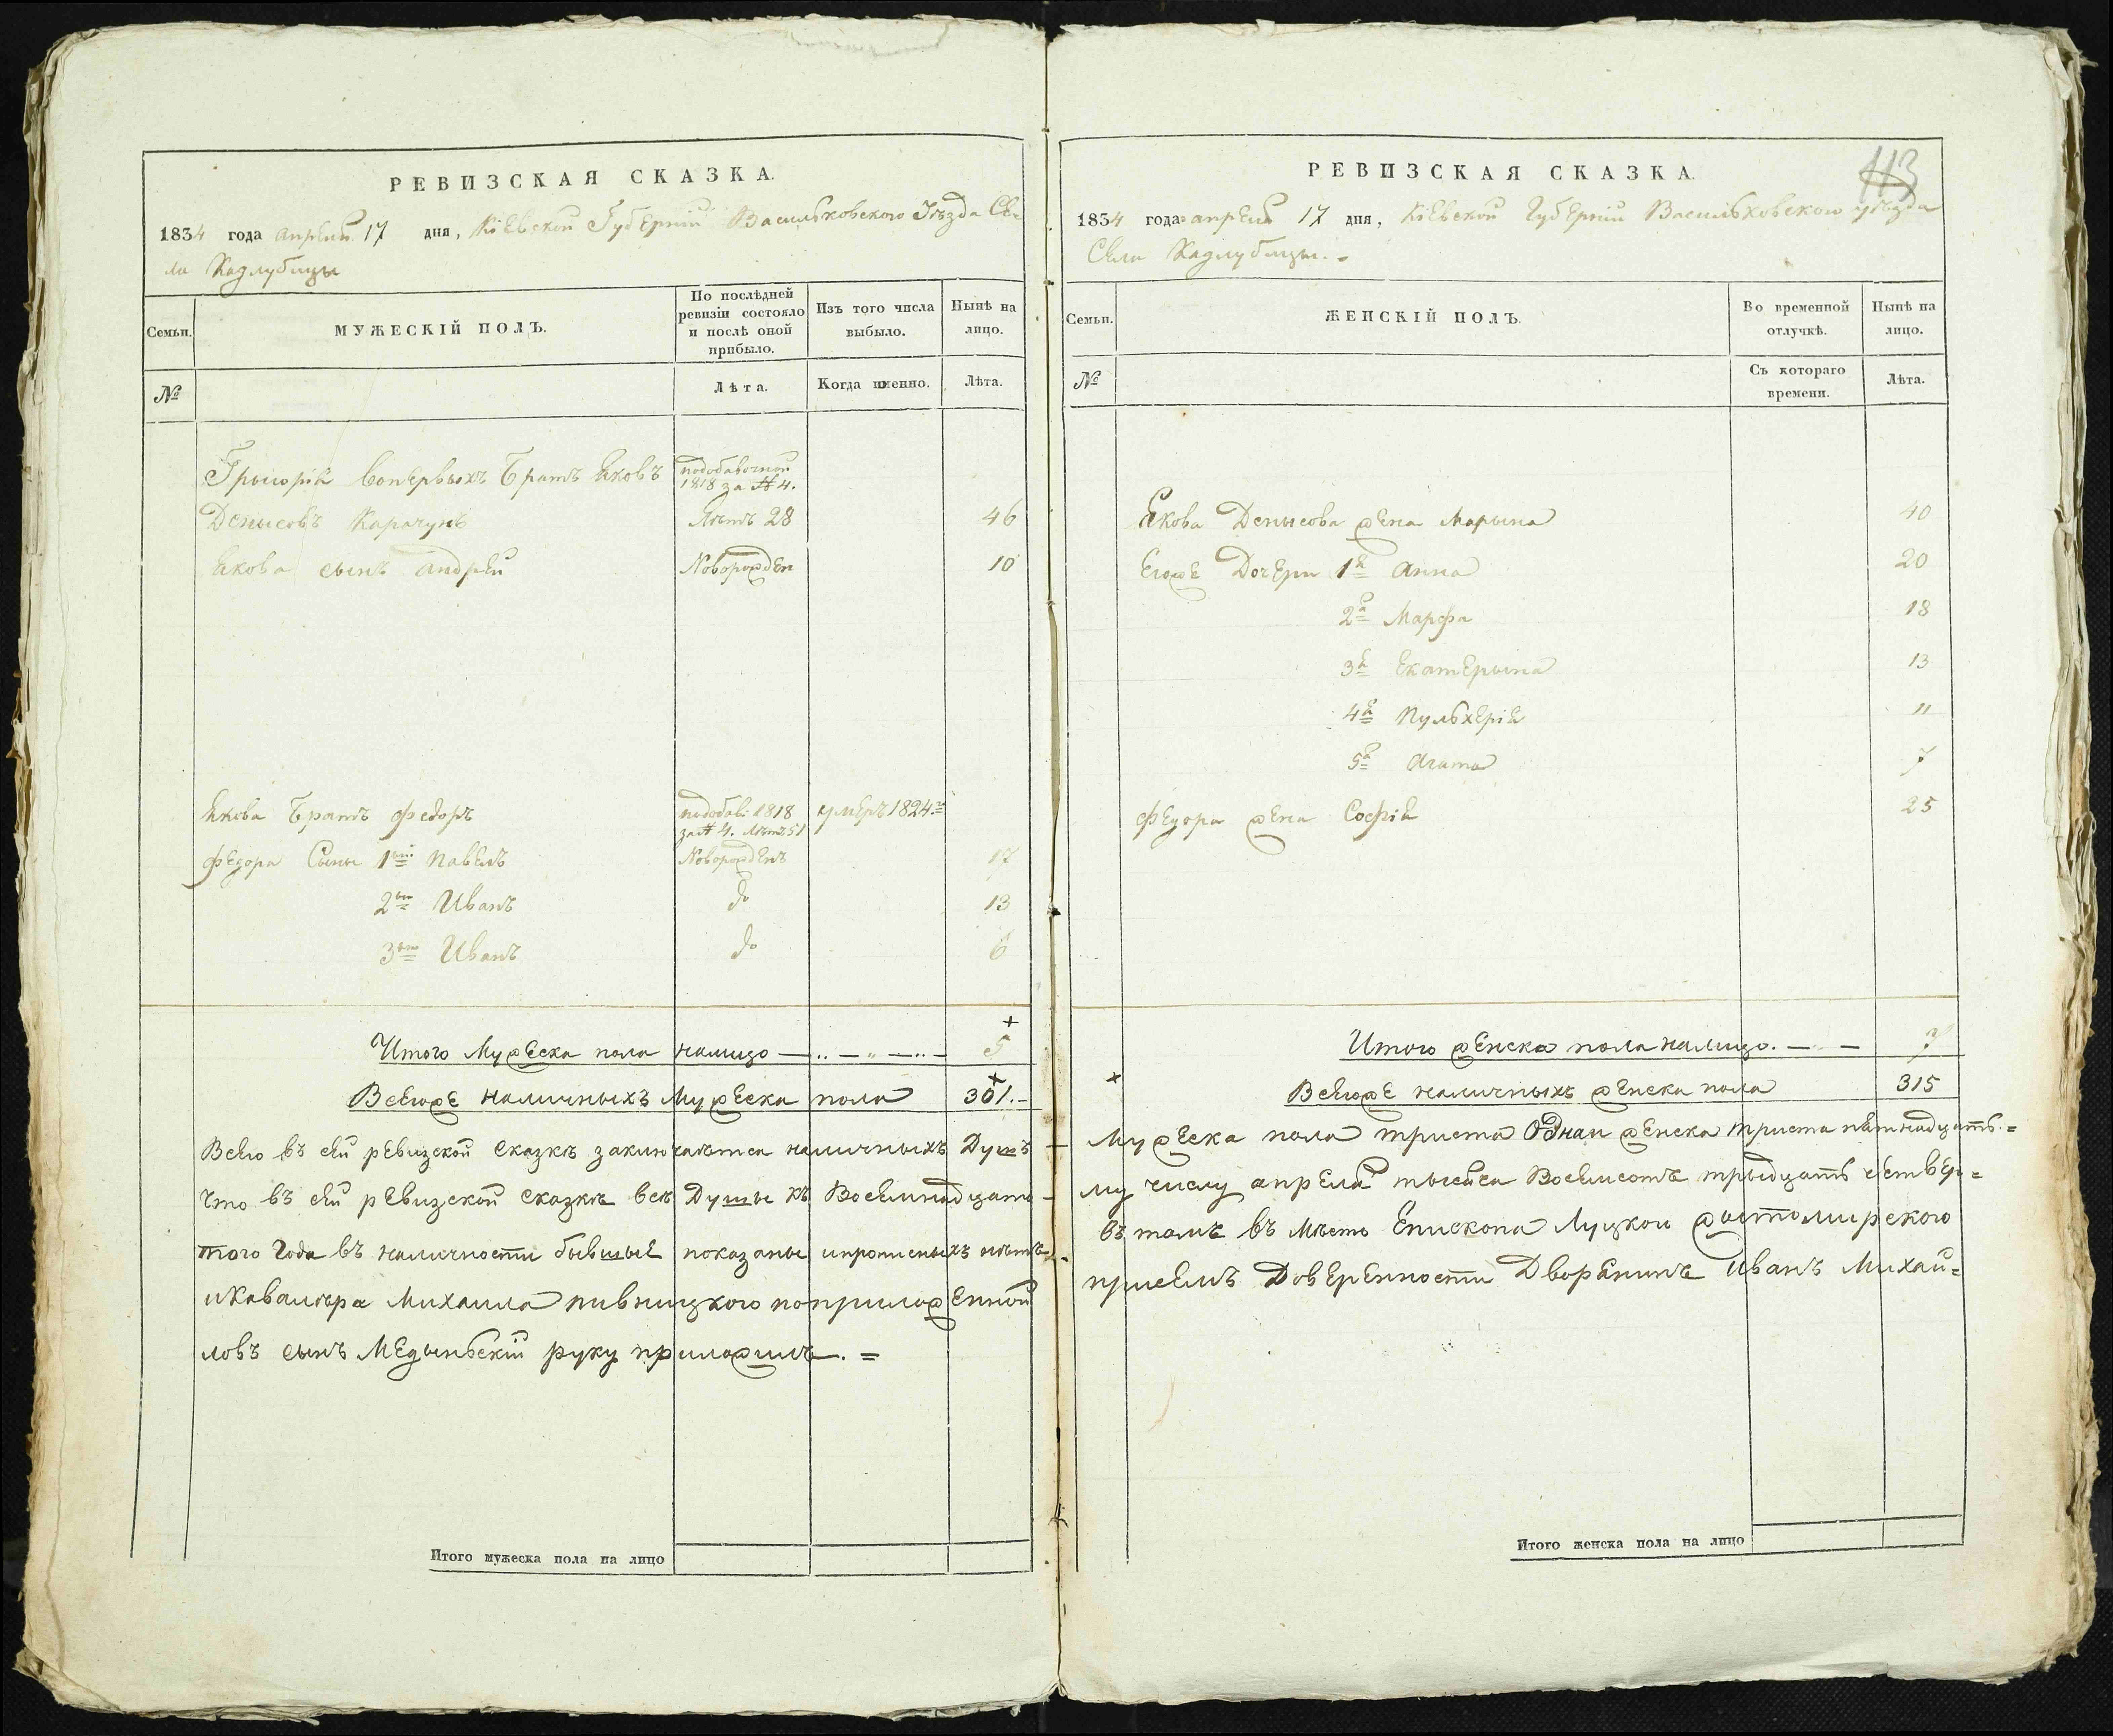 РЕВИЗСКАЯ СКАЗКА.
1834 года апреля 17 дня, Кіевской Губерніи Васильковского Уѣзда Се=
ла Кадлубицы
Семьи.
МУЖЕСКІЙ ПОЛЪ.
По послѣдней
ревизіи состояло
и послѣ оной
прибыло.
Изъ того числа
выбыло.
Нынѣ на
лицо.
№
Лѣта.
Когда именно.
Лѣта.
Грыгорія вопервыхъ Братъ Яковъ
подобавочной
1818 за № 4.
Денысовъ Карачунъ Лѣтъ 28 46
Якова сынъ андрей Новорожден 10
Якова Братъ Федоръ
подобав: 1818 умеръ 1824
за № 4. Лѣтъ 51
Федора Сыны 1ый Павелъ Новорожденъ 17
2ый Иванъ до 13
3ый Иванъ до 6
Итого Мужеска пола налицо 5
Всегоже наличныхъ Мужеска пола 301.
Всего въ сей ревизской сказкѣ заключаѣтся наличныхъ Душъ
что въ сей ревизской сказкѣ всѣ Душы къ Восемнадцато
того Года въ наличности бывшые показаны ипрописныхъ нѣтъ
иКавалѣра Михаила пивницкого поприложенной
ловъ сынъ Медыньскій руку приложилъ. =
Итого мужеска пола на лицо
РЕВИЗСКАЯ СКАЗКА.
113
1834 года апреля 17 дня, Кіевской Губерніи Васильковского уѣзда
Села Кадлубицы. =
Семьи.
ЖЕНСКІЙ ПОЛЪ.
Во временной
отлучкѣ.
Нынѣ на
лицо.
№
Съ котораго
времени.
Лѣта.
Якова Денысова жена Марына 40
Егоже Дочери 1я Анна 20
2я Марфа 18
3я Екатерына 13
4я Пульхерія 11
5я Агата 7
Федора жена Софія 25
Итого женска пола налицо. 7
Всегоже наличныхъ женска пола 315
Мужеска пола триста Однан женска триста пятнадцать. =
му числу апреля тысяча Восемсотъ трыдцать четвер=
въ томъ въ Мѣсто Епископа Луцкои житомирского
присемъ Доверенности Дворянинъ Иванъ Михай=
Итого женска пола на лицо